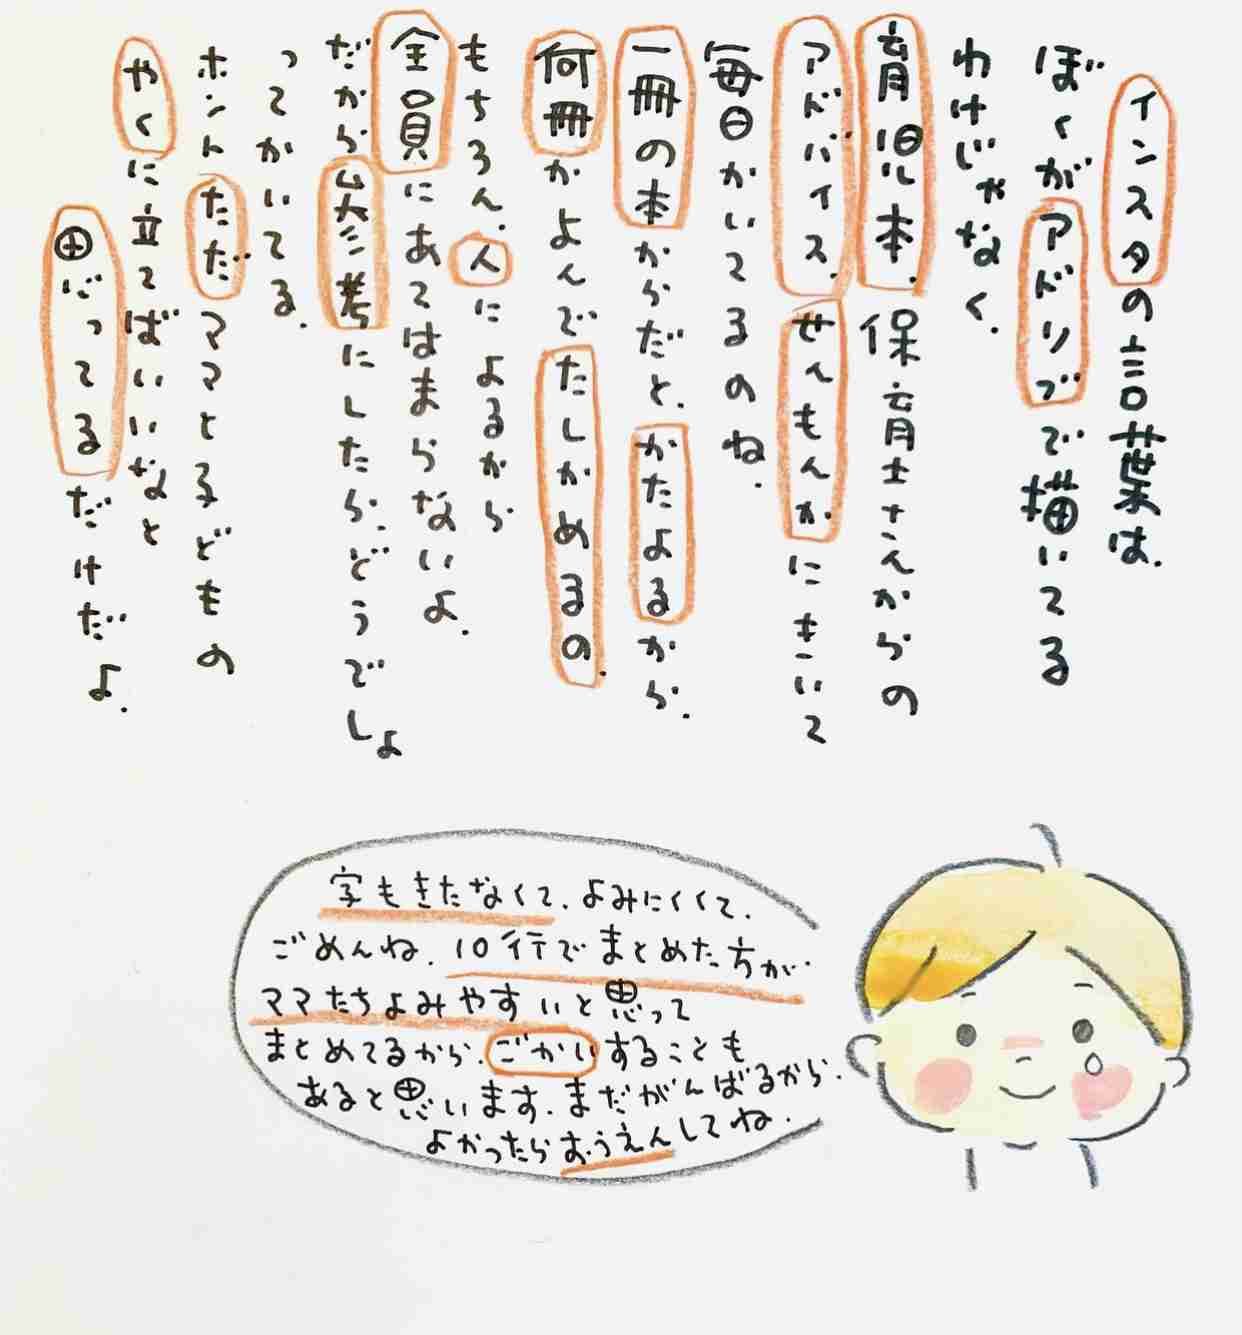 インスタの言葉は.
ぼくがアドリブで描いてる
わけじゃなく.
育児本.保育士さんからの
アドバイス.せんもんかにきいて
毎日かいてるのね.
一冊の本からだと.かたよるから.
何冊かよんでたしかめるの.
もちろん.人によるから
全員にあてはまらないよ.
だから参考にしたら.どうでしょ
ってかいてる.
ホントただママとこどもの
やくに立てばいいなと
思ってるだけだよ.
字もきたなくて.よみにくくて.
ごめんね.10行でまとめた方が.
ママたちよみやすいと思って
まとめてるから.ごかいすることも
あると思います.まだがんばるから.
よかったらおうえんしてね.